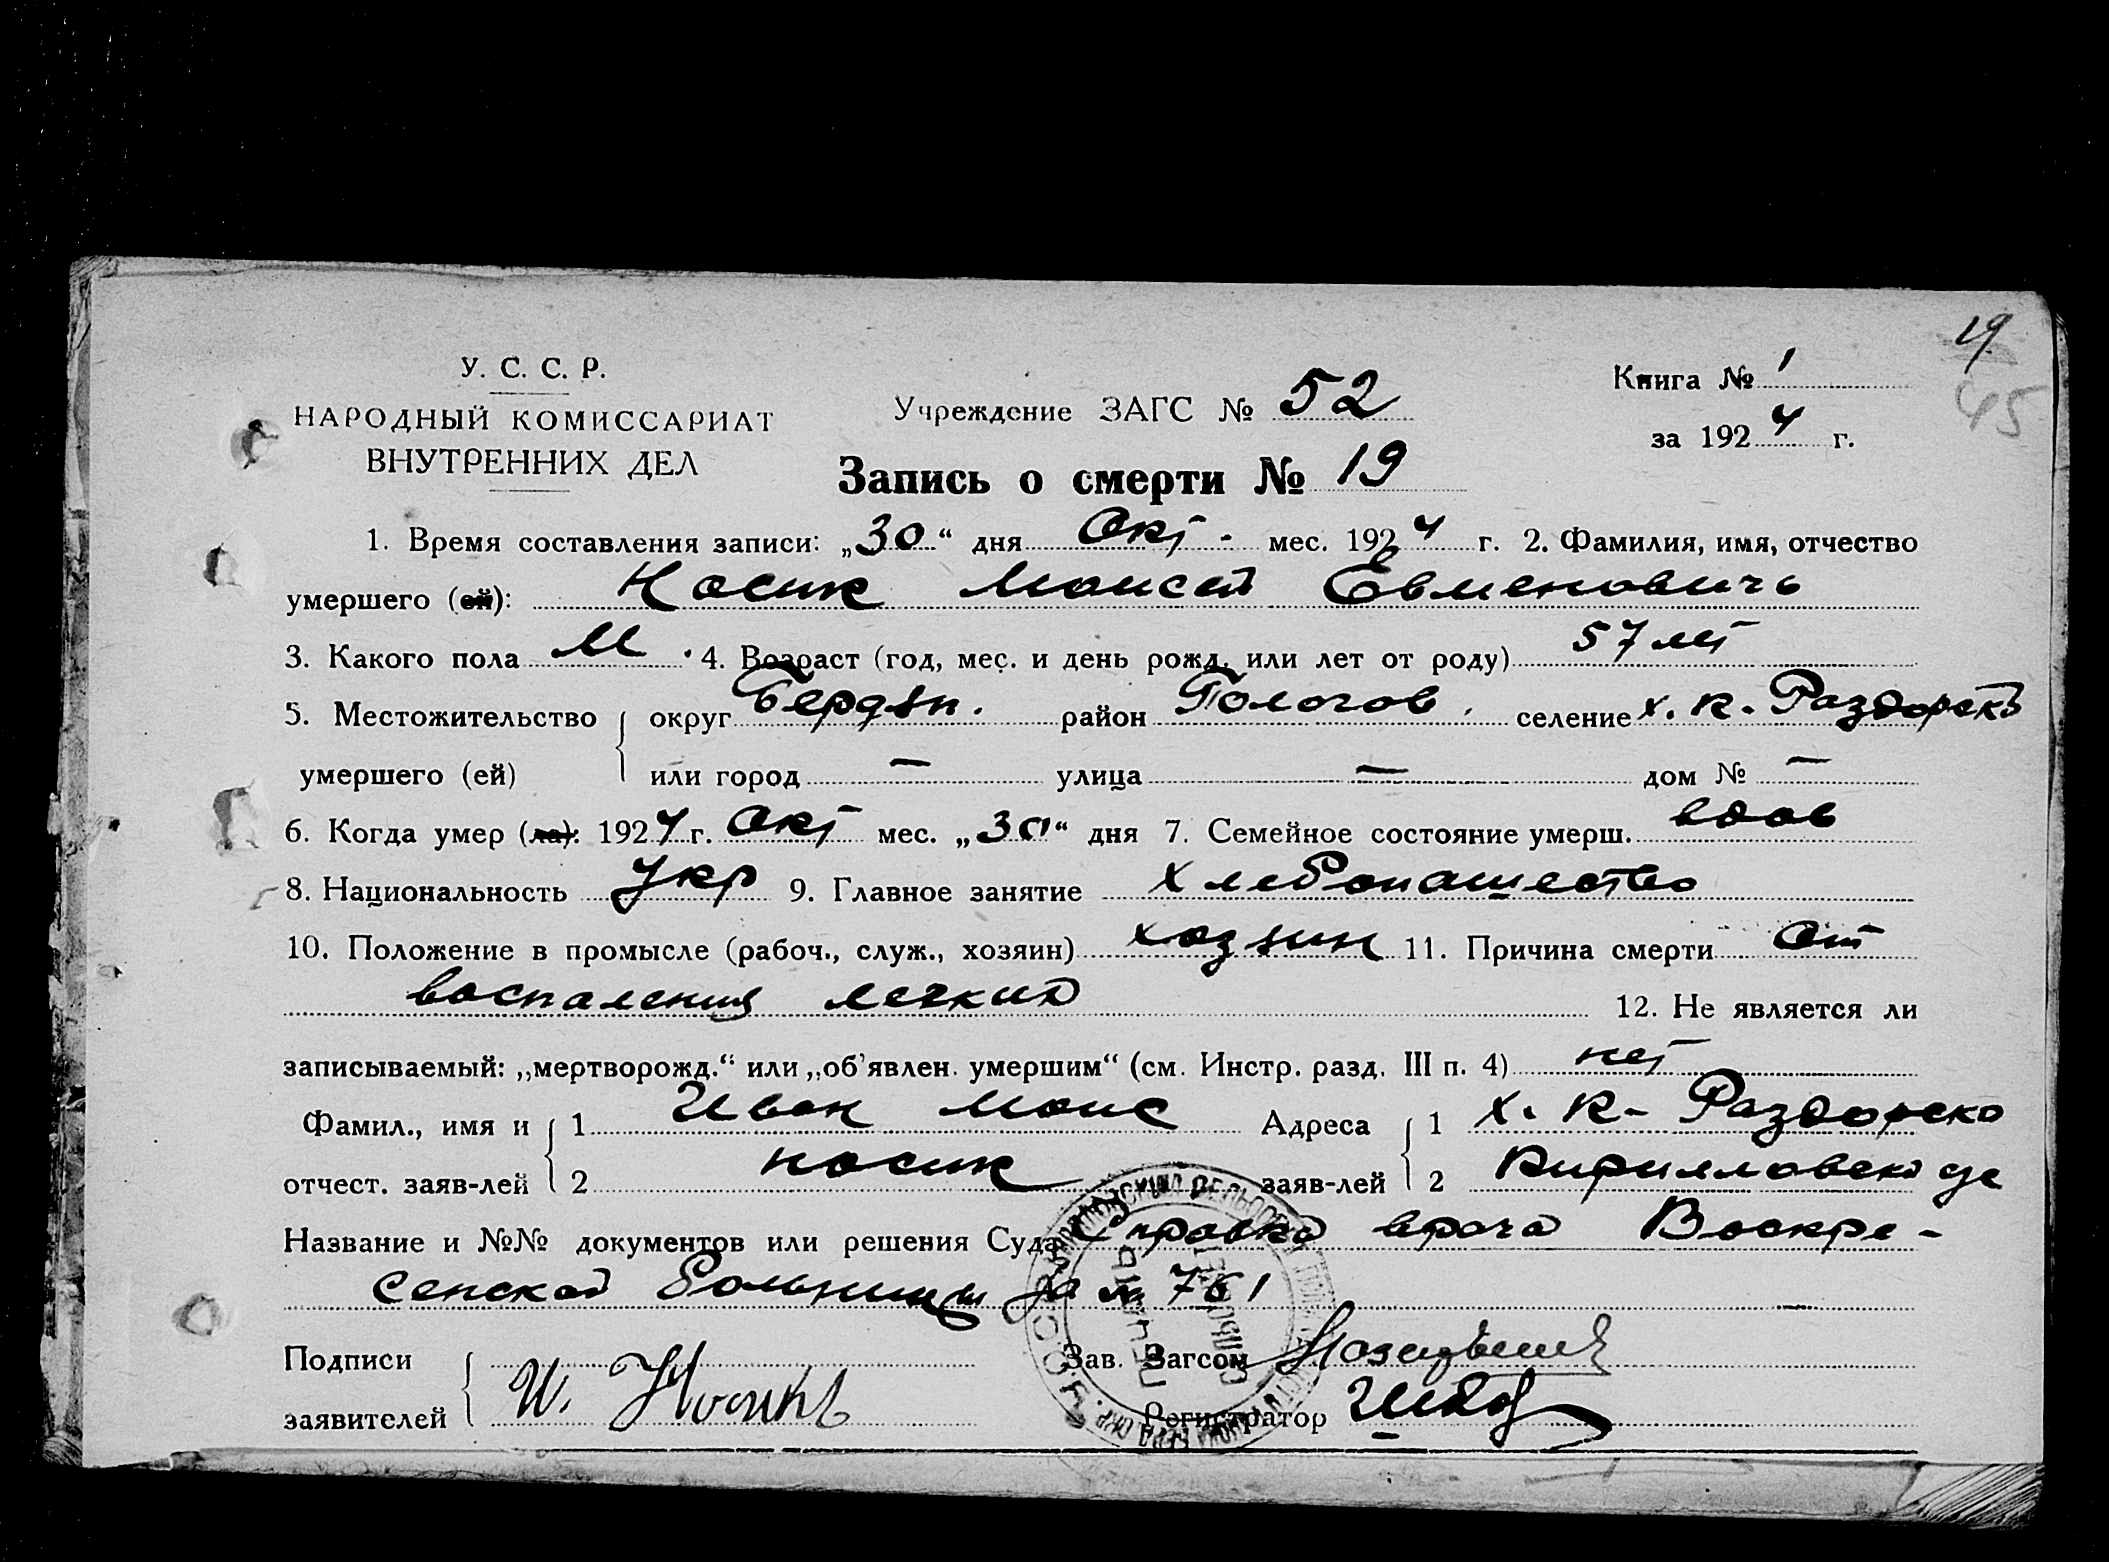 19
45
У. С. С. Р.
НАРОДНЫЙ КОМИССАРИАТ
ВНУТРЕННИХ ДЕЛ
Учреждение ЗАГС № 52
Книга № 1
за 1924 г.
Запись о смерти № 19
1. Время составления записи: „30“ дня Окт. мес. 1924 г. 2. Фамилия, имя, отчество
умершего (ей): Носик Моисей Евменовичь
3. Какого пола М. 4. Возраст (год, мес. и день рожд. или лет от роду) 57 лет
5. Местожительство округ Бердян. район Пологов. селение х. К. Раздорск
умершего (ей) или город — улица — дом № —
6. Когда умер (ла): 1924 г. Окт мес. „30“ дня 7. Семейное состояние умерш. вдов
8. Национальность Укр 9. Главное занятие Хлебопашество
10. Положение в промысле (рабоч., служ., хозяин) хозяин 11. Причина смерти От
воспаления легких
12. Не является ли
записываемый: „мертворожд.“ или „об’явлен. умершим“ (см. Инстр. разд. III п. 4) нет
Фамил., имя и 1 Иван Моис Адреса 1 х. К- Раздорско
отчест. заяв-лей 2 Носик заяв-лей 2 Кирилловск
Название и №№ документов или решения Суда Справка врача Воскре-
сенской больницы за № 761
Подписи Зав. Загсом
заявителей И. Носикъ Регистратор